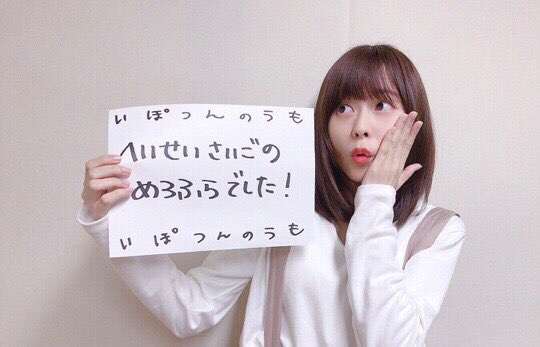 いぽつんのうも
へいせいさいごの
めろふらでした！
いぽつんのうも